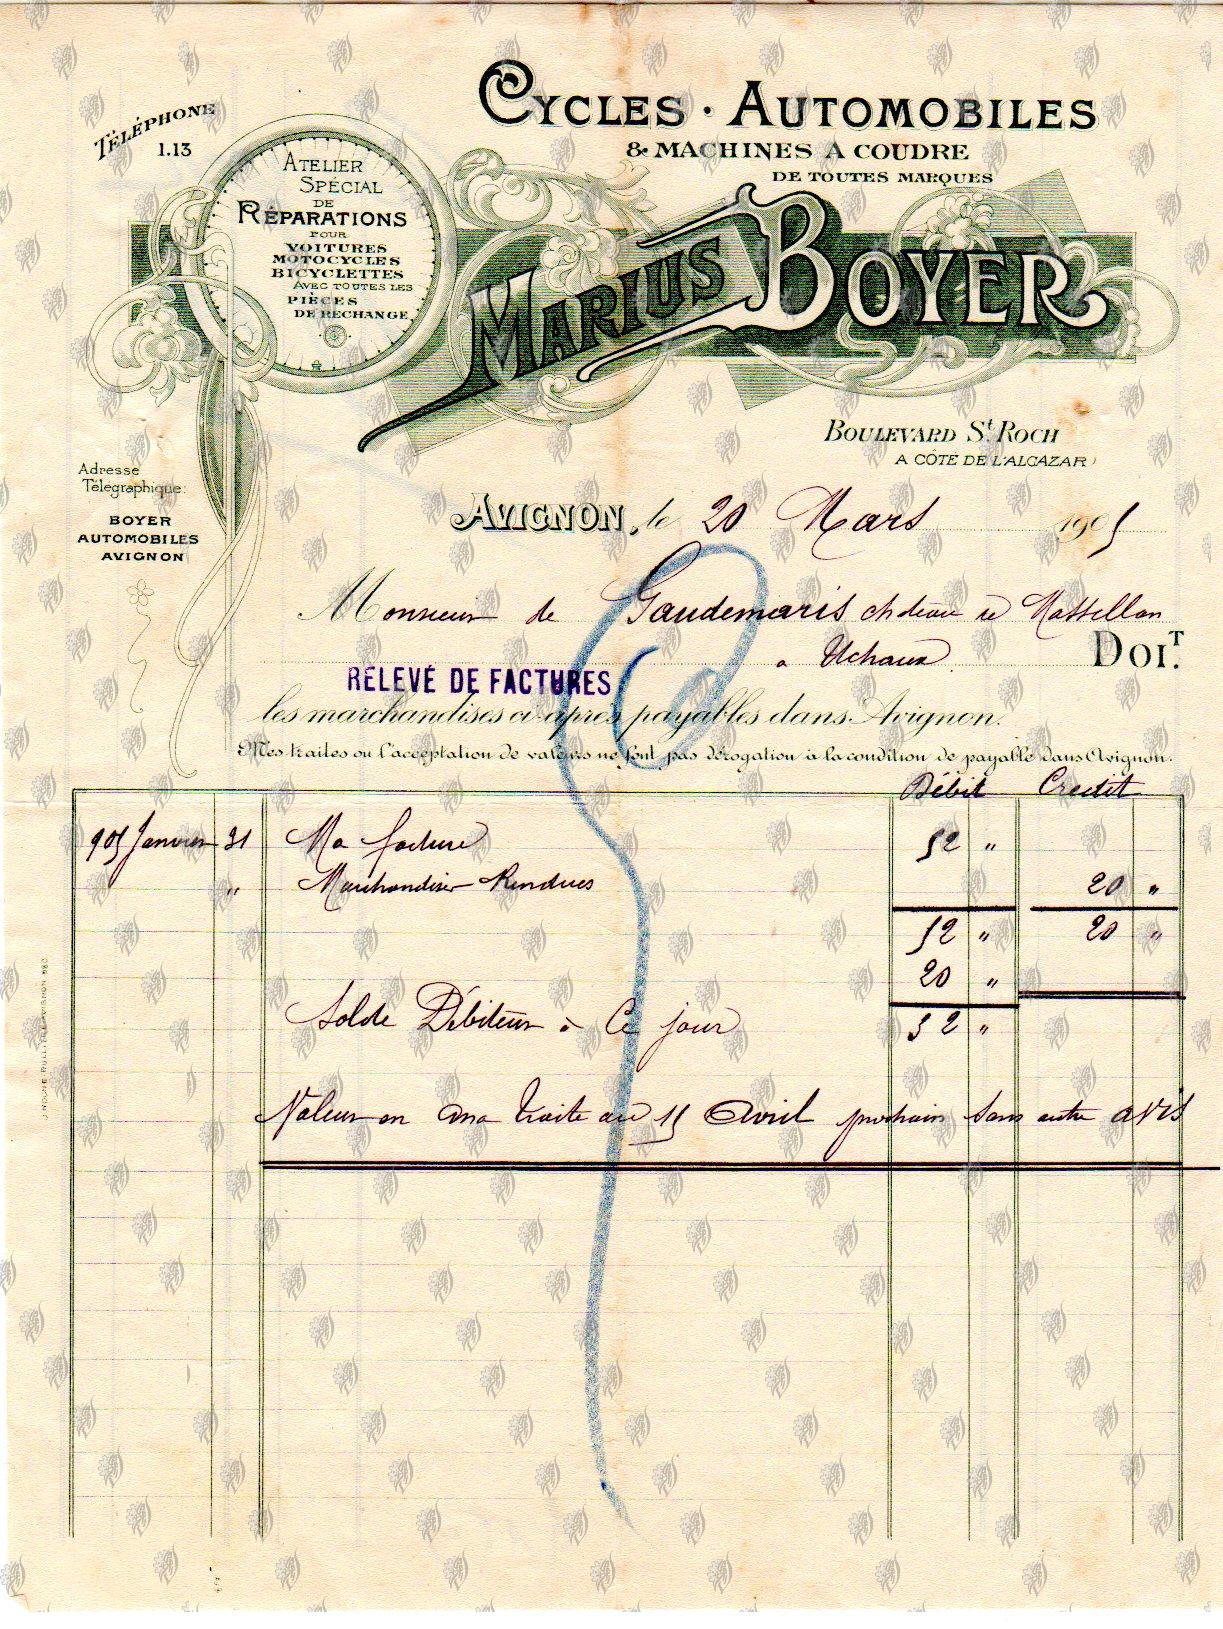 TÉLÉPHONE
1.13
CYCLES · AUTOMOBILES
& MACHINES A COUDRE
DE TOUTES MARQUES
ATELIER
SPÉCIAL
DE
RÉPARATIONS
POUR
VOITURES
MOTOCYCLES
BICYCLETTES
AVEC TOUTES LES
PIÈCES
DE RECHANGE
MARIUS BOYER
BOULEVARD St. ROCH
A COTÉ DE L'ALCAZAR
Adresse
Télégraphique:
BOYER
AUTOMOBILES
AVIGNON
AVIGNON, le 20 Mars 1905
Monsieur de Gaudemaris chateau de Massillan
a Uchaux DOIT.
RELEVÉ DE FACTURES
les marchandises ci-après payables dans Avignon.
Mes traites ou l'acceptation de valeurs ne font pas dérogation à la condition de payable dans Avignon.
Débit Credit
905 Janvier 31 Ma facture 52 "
" Marchandises Rendues 20 "
52 " 20 "
20 "
Solde Débiteur à Ce jour 32 "
Valeur en ma traite au 15 Avril prochain sans autre avis